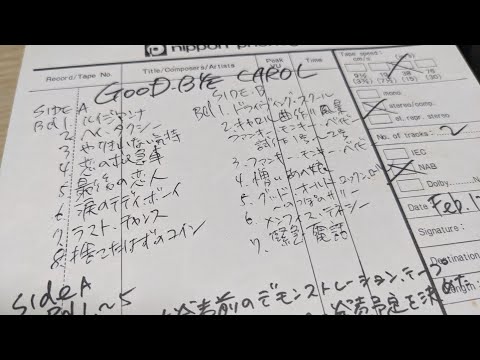 nippon phono
Record/Tape No.
Title/Composers/Artists
Peak
VU
Time
GOOD-BYE CAROL
SIDE A
Bd 1. ルイジアンナ
2 ヘイ・タクシー
3 やりきれない気持
4 恋の救急車
5 最后の恋人
6 涙のテディ・ボーイ
7 ラスト・チャンス
8 捨てたはずのコイン
SIDE B
Bd 1. ドライヴィング・スクール
2. キャロル曲作り風景
ファンキー・モンキー・ベイビー
試作1号・2号
3. ファンキー・モンキー・ベイビー
4. 憎いあの娘
5. グッド・オールド・ロックン・ロール
のっぽのサリー
6. メンフィス・テネシー
7. 緊急電話
Side A
Bd 1~5
発売前のデモンストレーション・テープ
発売予定を決めた
Tape speed:
cm/s
76
(30)
mono
stereo/comp.
st. repr. stereo
No. of tracks: 2
IEC
NAB
Dolby
Date Feb. 1
Signature:
Destination
Length: